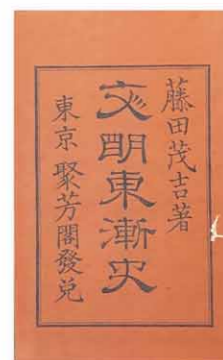 藤田茂吉著
文明東漸史
東京 聚芳閣發兌